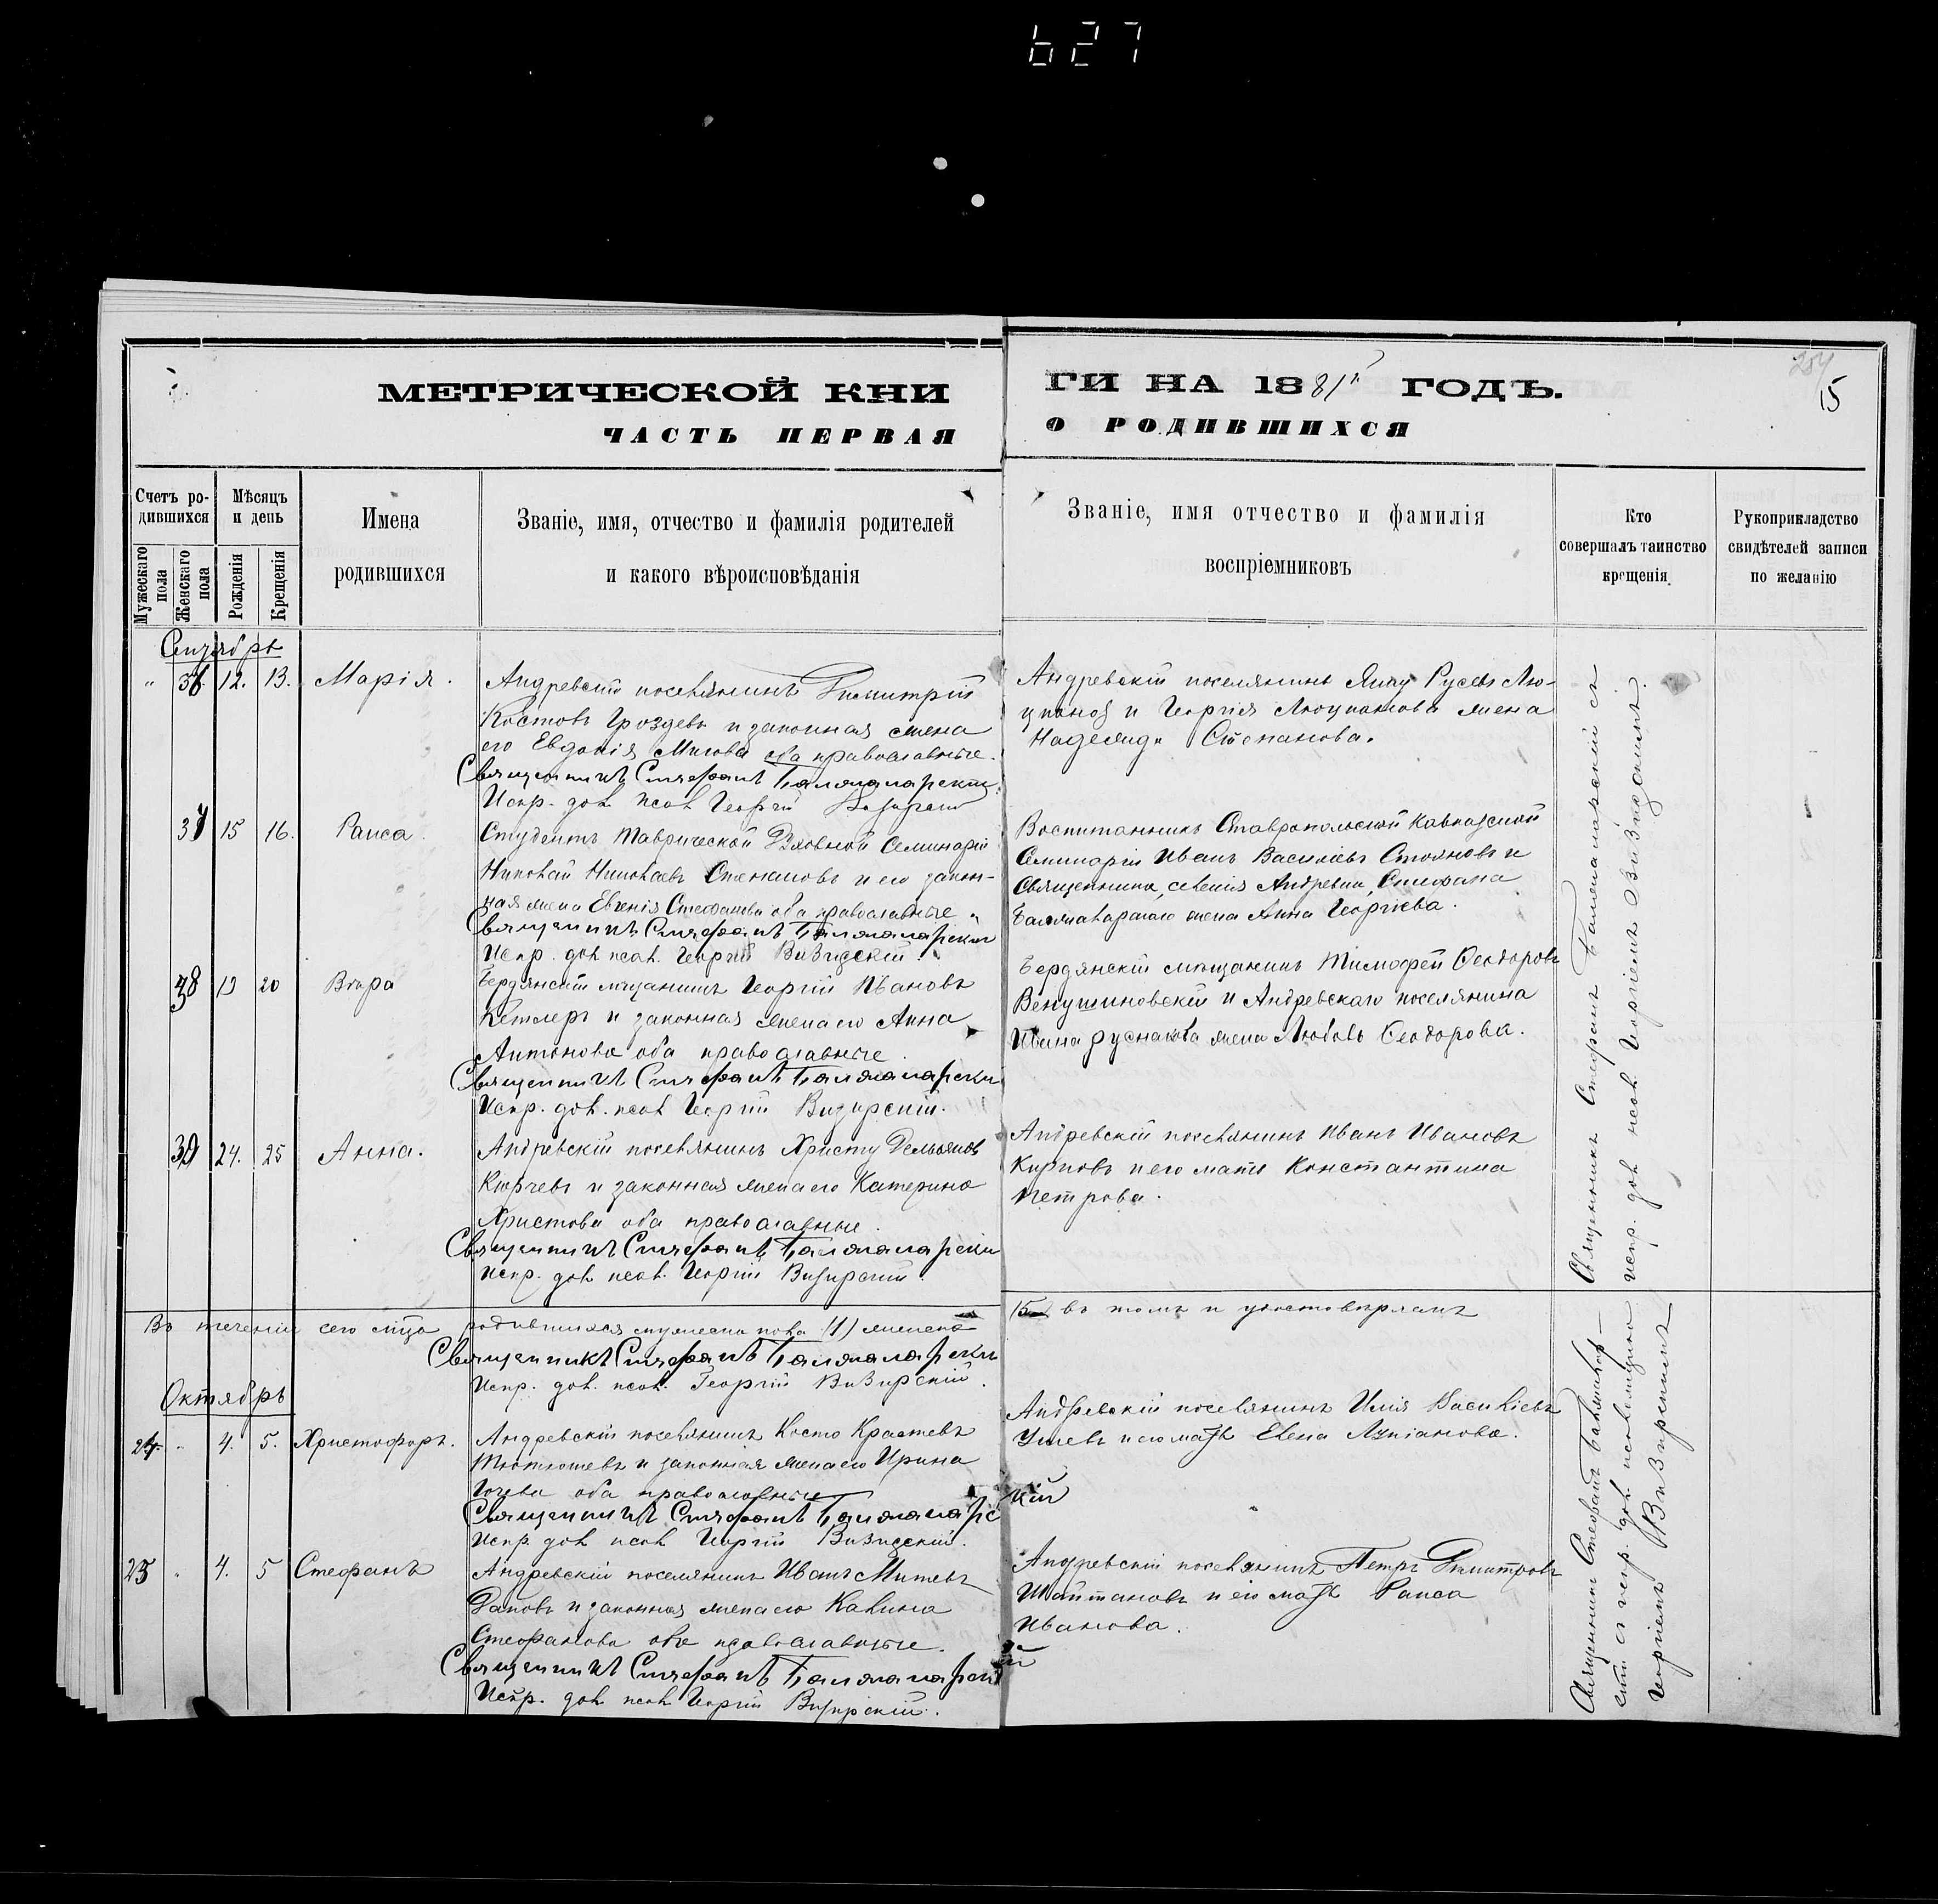 627
МЕТРИЧЕСКОЙ КНИ
ЧАСТЬ ПЕРВАЯ
ГИ НА 1881й ГОДЪ.
О РОДИВШИХСЯ
15
Счетъ ро-
дившихся
Мужескаго пола
Женскаго пола
Мѣсяцъ
и день
Рожденія
Крещенія
Имена
родившихся
Званіе, имя, отчество и фамилія родителей
и какого вѣроисповѣданія
Званіе, имя отчество и фамилія
воспріемниковъ
Кто
совершалъ таинство
крещенія
Рукоприкладство
свидѣтелей записи
по желанію
Сентябрь
" 36. 12. 13. Марія.
Андревскій поселянинъ Димитрій
Костовъ Гроздевъ и законная жена
его Евдокія Митова оба православные.
Священникъ Стефанъ Балжаларскій
Испр. дол. псал. Георгій Визирскій
Андревскій поселянинъ Яни Русевъ Лю-
цкановъ и Георгія Люцканова жена
Надежда Степанова.
37 15 16. Раиса.
Студентъ Таврической Духовной Семинаріи
Николай Николаевъ Степановъ и его закон-
ная жена Евгенія Стефанова оба православные.
Священникъ Стефанъ Балжаларскій
Испр. дол. псал. Георгій Визирскій.
Воспитанникъ Ставропольской Кавказской
Семинаріи Иванъ Василіевъ Стояновъ и
Священника, селенія Андревки, Стефана
Балжаларскаго жена Анна Георгіева.
38 19 20 Вѣра
Бердянскій мѣщанинъ Георгій Ивановъ
Кетлеръ и законная жена его Анна
Антонова оба православные.
Священникъ Стефанъ Балжаларскій
Испр. дол. псал. Георгій Визирскій.
Бердянскій мѣщанинъ Тимофей Феодоровъ
и Андревскаго поселянина
Ивана Руснакова жена Любовь Феодорова.
39 24. 25 Анна.
Андревскій поселянинъ Христу
Кюрчевъ и законная жена его Катерина
Христова оба православные.
Священникъ Стефанъ Балжаларскій
Испр. дол. псал. Георгій Визирскій.
Андревскій поселянинъ Иванъ Ивановъ
Кирповъ и его мать Константина
Петрова.
Священникъ Стефанъ Балжаларскій съ
испр. дол. псал. Георгіемъ Визирскимъ.
Въ теченіи сего мѣсца родившихся мужеска пола (1) женска
15 въ томъ и удостовѣряемъ
Священникъ Стефанъ Балжаларскій
Испр. дол. псал. Георгій Визирскій.
Октябрь
24. " 4. 5. Христофоръ.
Андревскій поселянинъ Косто Крастевъ
Тютюшевъ и законная жена его Ирина
Гочева оба православные
Священникъ Стефанъ Балжаларскій
Испр. дол. псал. Георгій Визирскій.
Андревскій поселянинъ Илія Василіевъ
и его мать Елена Лупіанова.
25 " 4. 5 Стефанъ
Андревскій поселянинъ Иванъ Митевъ
Даковъ и законная жена его Калина
Стефанова оба православные.
Священникъ Стефанъ Балжаларскій
Испр. дол. псал. Георгій Визирскій.
Андревскій поселянинъ Петръ Димитровъ
Шайтановъ и его мать Раиса
Иванова.
Священникъ Стефанъ Балжалар-
скій съ испр. дол. псаломщика
Георгіемъ Визирскимъ